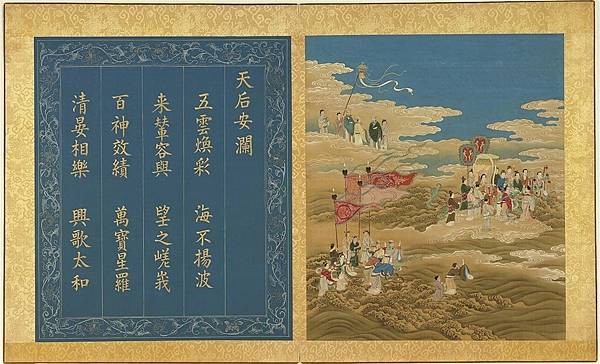 天后安瀾
五雲煥彩 海不揚波
来輦容與 朢之嵯峩
百神效績 萬寶星羅
清晏相樂 興歌太和